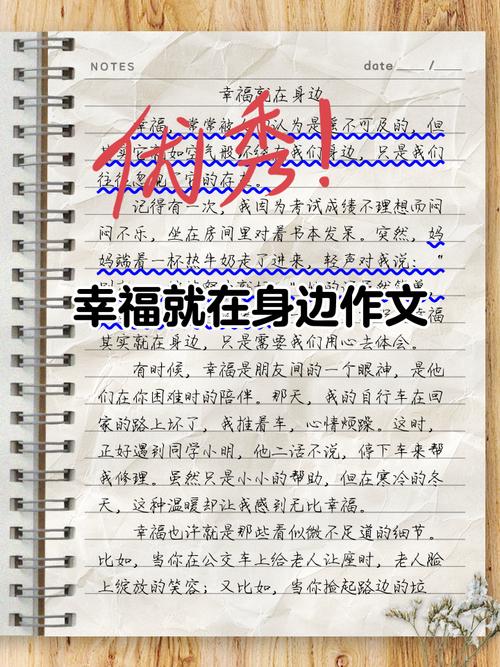 NOTES
date ___ / ___
幸福就在身边
幸福，常常被 认为是遥不可及的，但
其实它 如空气般环绕在我们身边，只是我们
往往忽视 它的存
优秀！
记得有一次，我因为考试成绩不理想而闷
闷不乐，坐在房间里对着书本发呆。突然，妈
妈端着一杯热牛奶走了进来，轻声对我说：“
幸福就在身边作文
幸福
其实就在身边，只是需要我们用心去体会。
有时候，幸福是朋友间的一个眼神，是他
们在你困难时的陪伴。那天，我的自行车在回
家的路上坏了，我推着车，心情烦躁。这时，
正好遇到同学小明，他二话不说，停下车来帮
我修理。虽然只是小小的帮助，但在寒冷的冬
天，这种温暖却让我感到无比幸福。
幸福也许就是那些看似微不足道的细节。
比如，当你在公交车上给老人让座时，老人脸
上绽放的笑容；又比如，当你捡起路边的垃